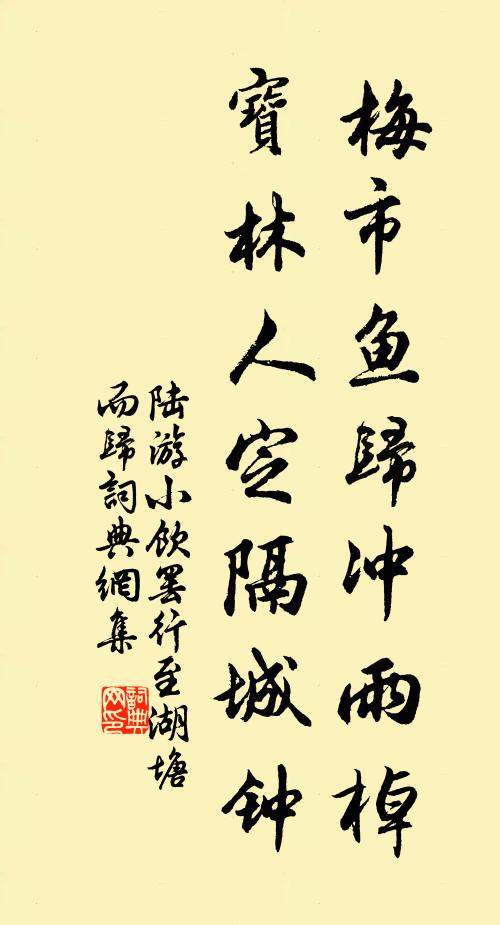 梅市鱼歸冲雨棹
寶林人定隔城钟
陆游小飲罢行至湖塘
而歸詞典網集
詞典
网印